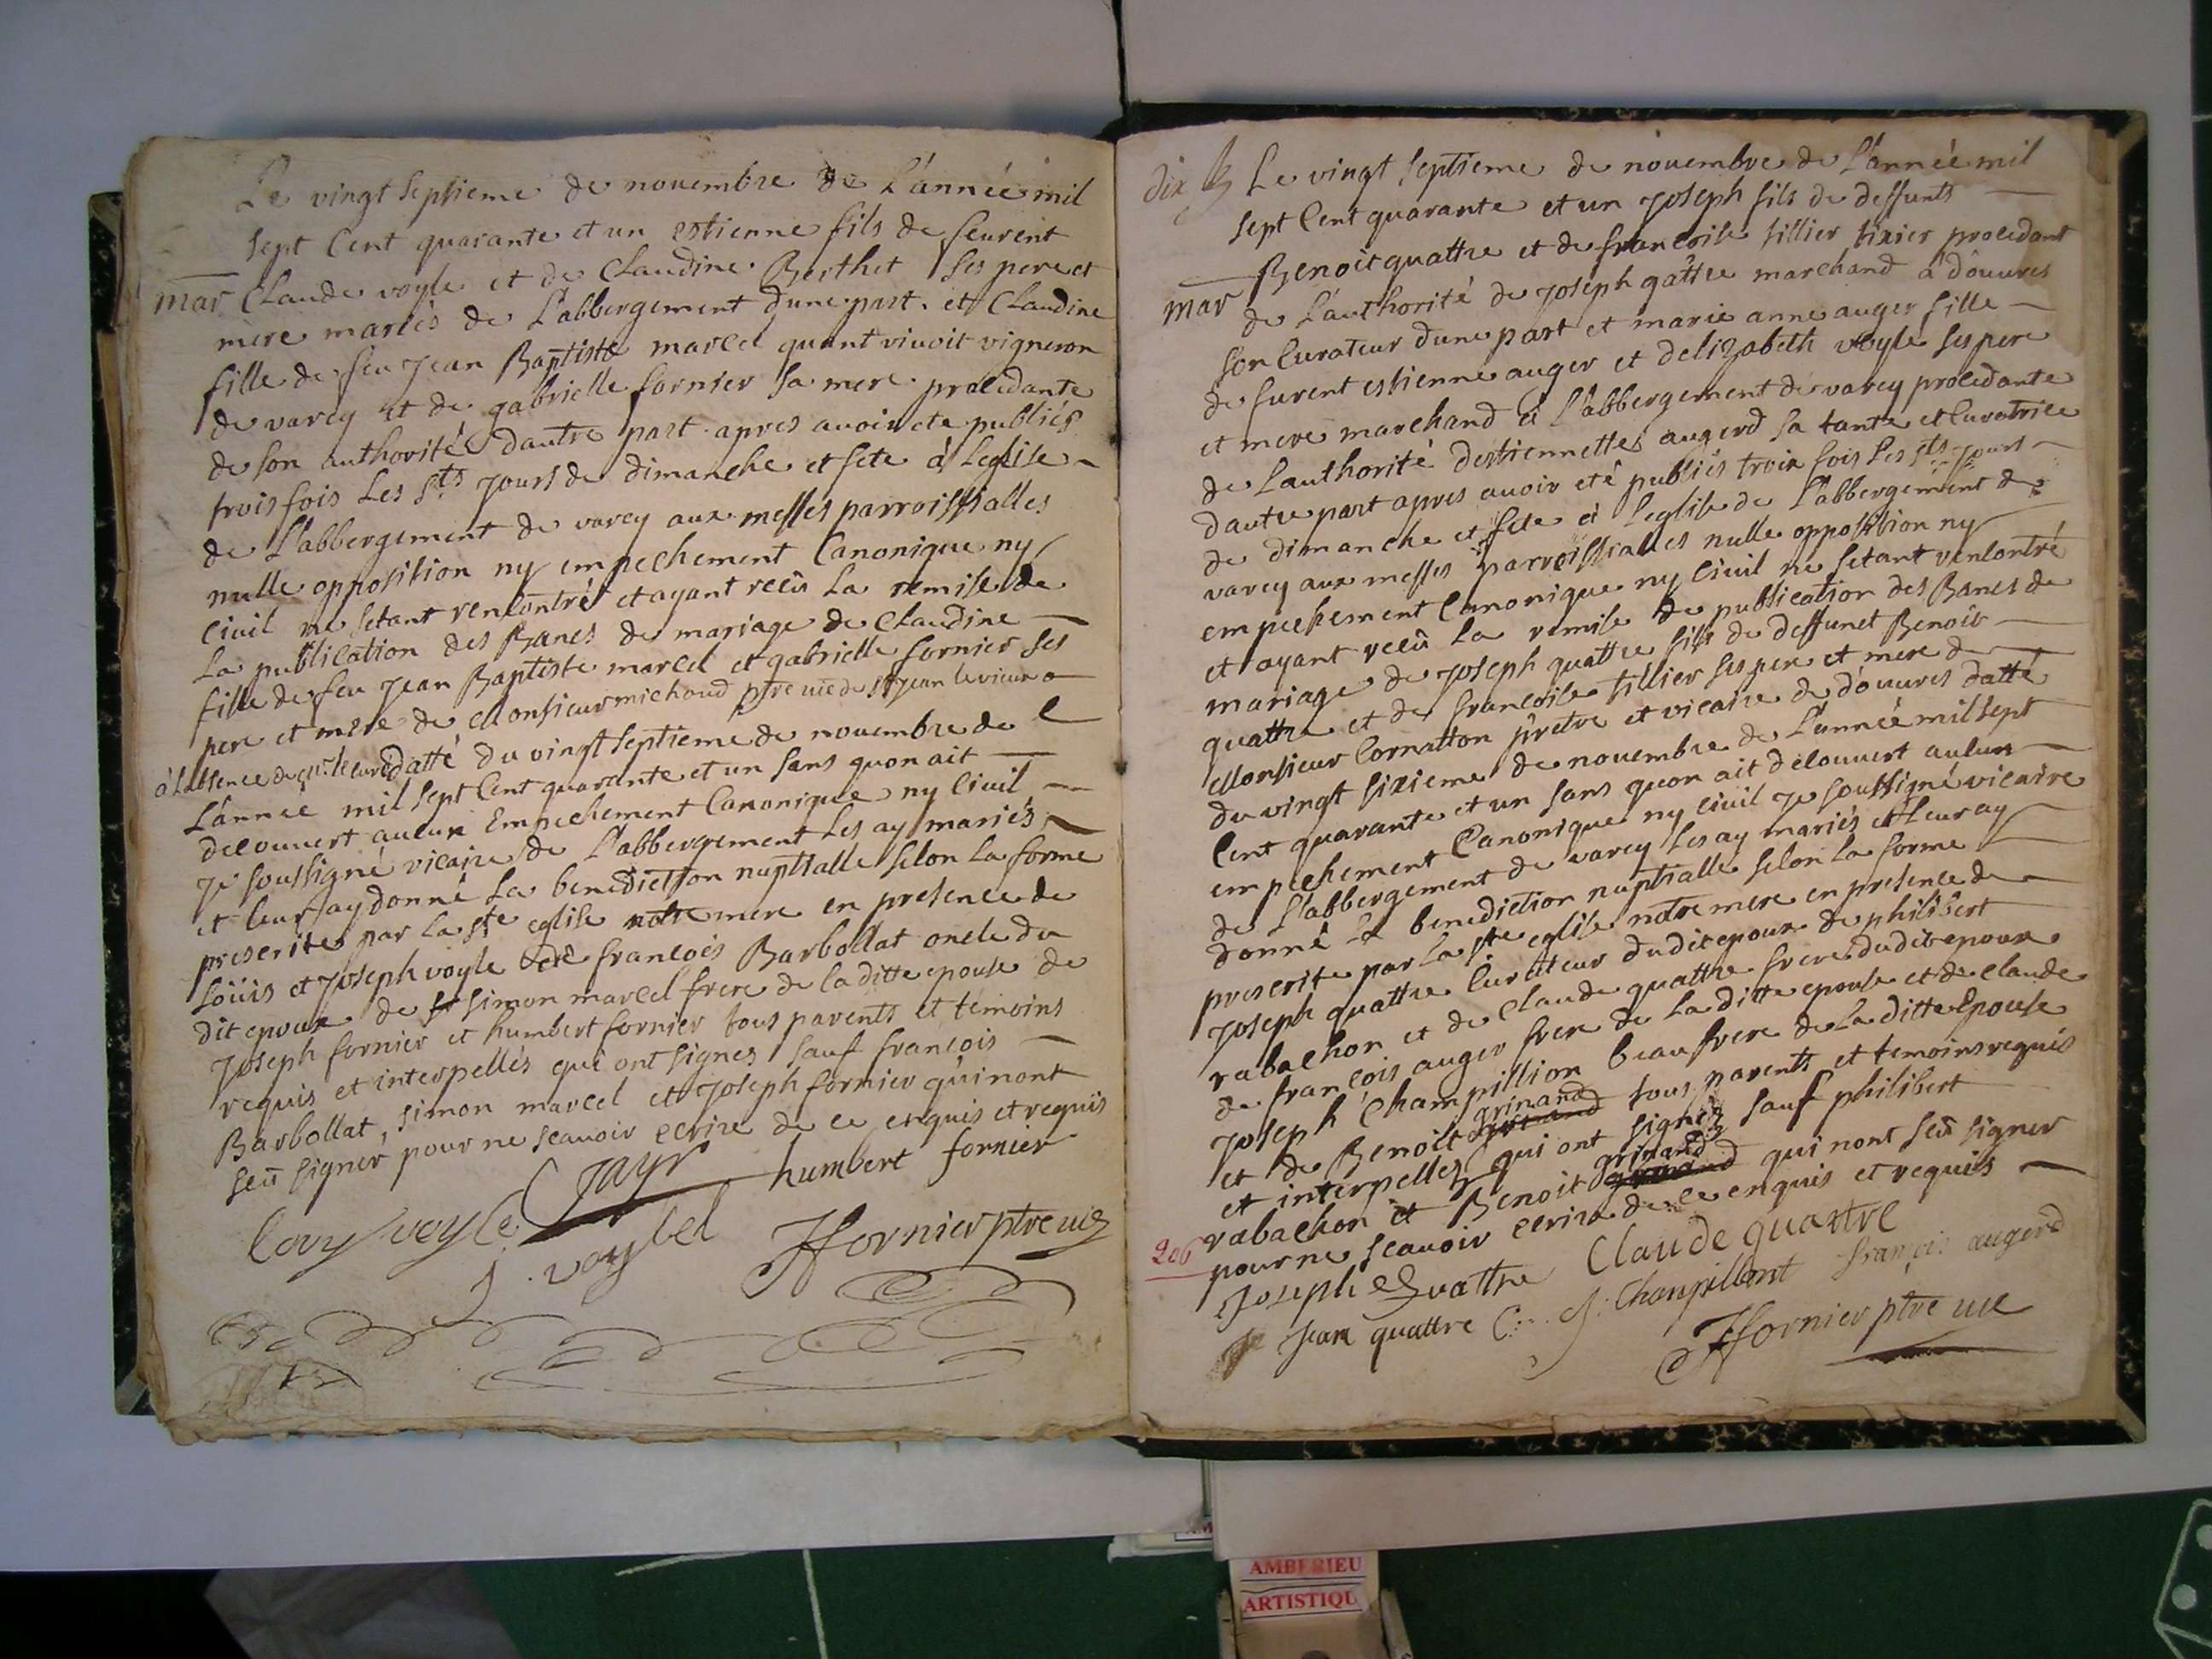 Le vingt Septieme de novembre de L'année mil
sept Cent quarante et un estienne fils de feurent
mar Claude voyle et de Claudine Berthet ses pere et
mere mariés de L'abbergement dune part. et Claudine
fille de feu Jean Baptiste marcel quant vivoit vigneron
de varey et de gabrielle fornier sa mere procedante
de son authorité dautre part apres avoir ete publiés
trois fois Les Sts Jours de dimanche et fete à Leglise
de L'abbergement de varey aux messes parroissialles
nulle opposition ny empechement Canonique ny
Civil ne setant rencontré et ayant recu La remise de
La publication des Bancs de mariage de Claudine
fille de feu Jean Baptiste marcel et gabrielle fornier ses
pere et mere de Monsieur michaud ptre vic de St Jean levieux
à Labsence du sr le curé datté du vingt septieme de novembre de
L'année mil sept Cent quarante et un sans quon ait
decouvert aucun Empechement Canonique ny Civil
Je soussigné vicaire de L'abbergement Les ay mariés
et leur ay donné La benediction nuptialle selon La forme
prescrite par La ste eglise notre mere en presence de
Loüis et Joseph voyle de françois Barbollat oncle du
dit epoux de simon marcel frere de la ditte epouse de
Joseph fornier et humbert fornier tous parents et temoins
requis et interpellés qui ont signes sauf françois
Barbollat, simon marcel et Joseph fornier qui nont
seü signer pour ne scavoir ecrire de ce enquis et requis
Jayr humbert fornier
Louy voyle J. voylel Fornier ptre vic
dix Le vingt septieme de novembre de L'année mil
sept Cent quarante et un Joseph fils de deffunts
Benoit quattre et de francoise tillier tixier procedant
mar de L'authorité de Joseph gâttre marchand à douvres
son Curateur dune part et marie anne auger fille
de furent estienne auger et delizabeth voyle ses pere
et mere marchand à L'abbergement de varey procedante
de Lauthorité destiennette augerd sa tante et Curatrice
dautre part apres avoir eté publiés trois fois Les sts Jours
de dimanche et fete à Leglise de L'abbergement de
varey aux messes parroissialles nulle opposition ny
empechement Canonique ny Civil ne setant rencontré
et ayant recû La remise de publication des Bancs de
mariage de Joseph quattre fils de deffunct Benoit
quattre et de francoise tillier ses pere et mere de
Monsieur Cornatton prêtre et vicaire de douvres datté
du vingt sixieme de novembre de L'année mil sept
Cent quarante et un sans quon ait decouvert aucun
empechement Canonique ny Civil Je soussigné vicaire
de L'abbergement de varey Les ay mariés et Leur ay
donné La benediction nuptialle selon La forme
prescrite par La ste eglise notre mere en presence de
Joseph quattre Curateur dudit epoux de philibert
rabachon et de Claude quattre frere dudit epoux
de françois auger frere de La ditte epouse et de Claude
Joseph Champillion beau frere de La ditte Epouse
et de Benoit grinand tous parents et temoins requis
et interpellez qui ont signéz sauf philibert
rabachon et Benoit grinand qui nont seü signer
pour ne scavoir ecrire de ce enquis et requis
206
Joseph Quattre Claude quattre
Jean quattre C. J. Champillont françois augerd
Fornier ptre vic
AMBERIEU
ARTISTIQU